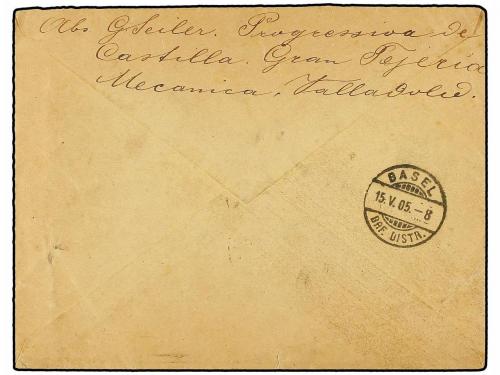 Abs. G Seiler. Progressiva de
Castilla. Gran Tejeria
Mecanica, Valladolid.
BASEL
15.V.05.-8
BRF. DISTR.